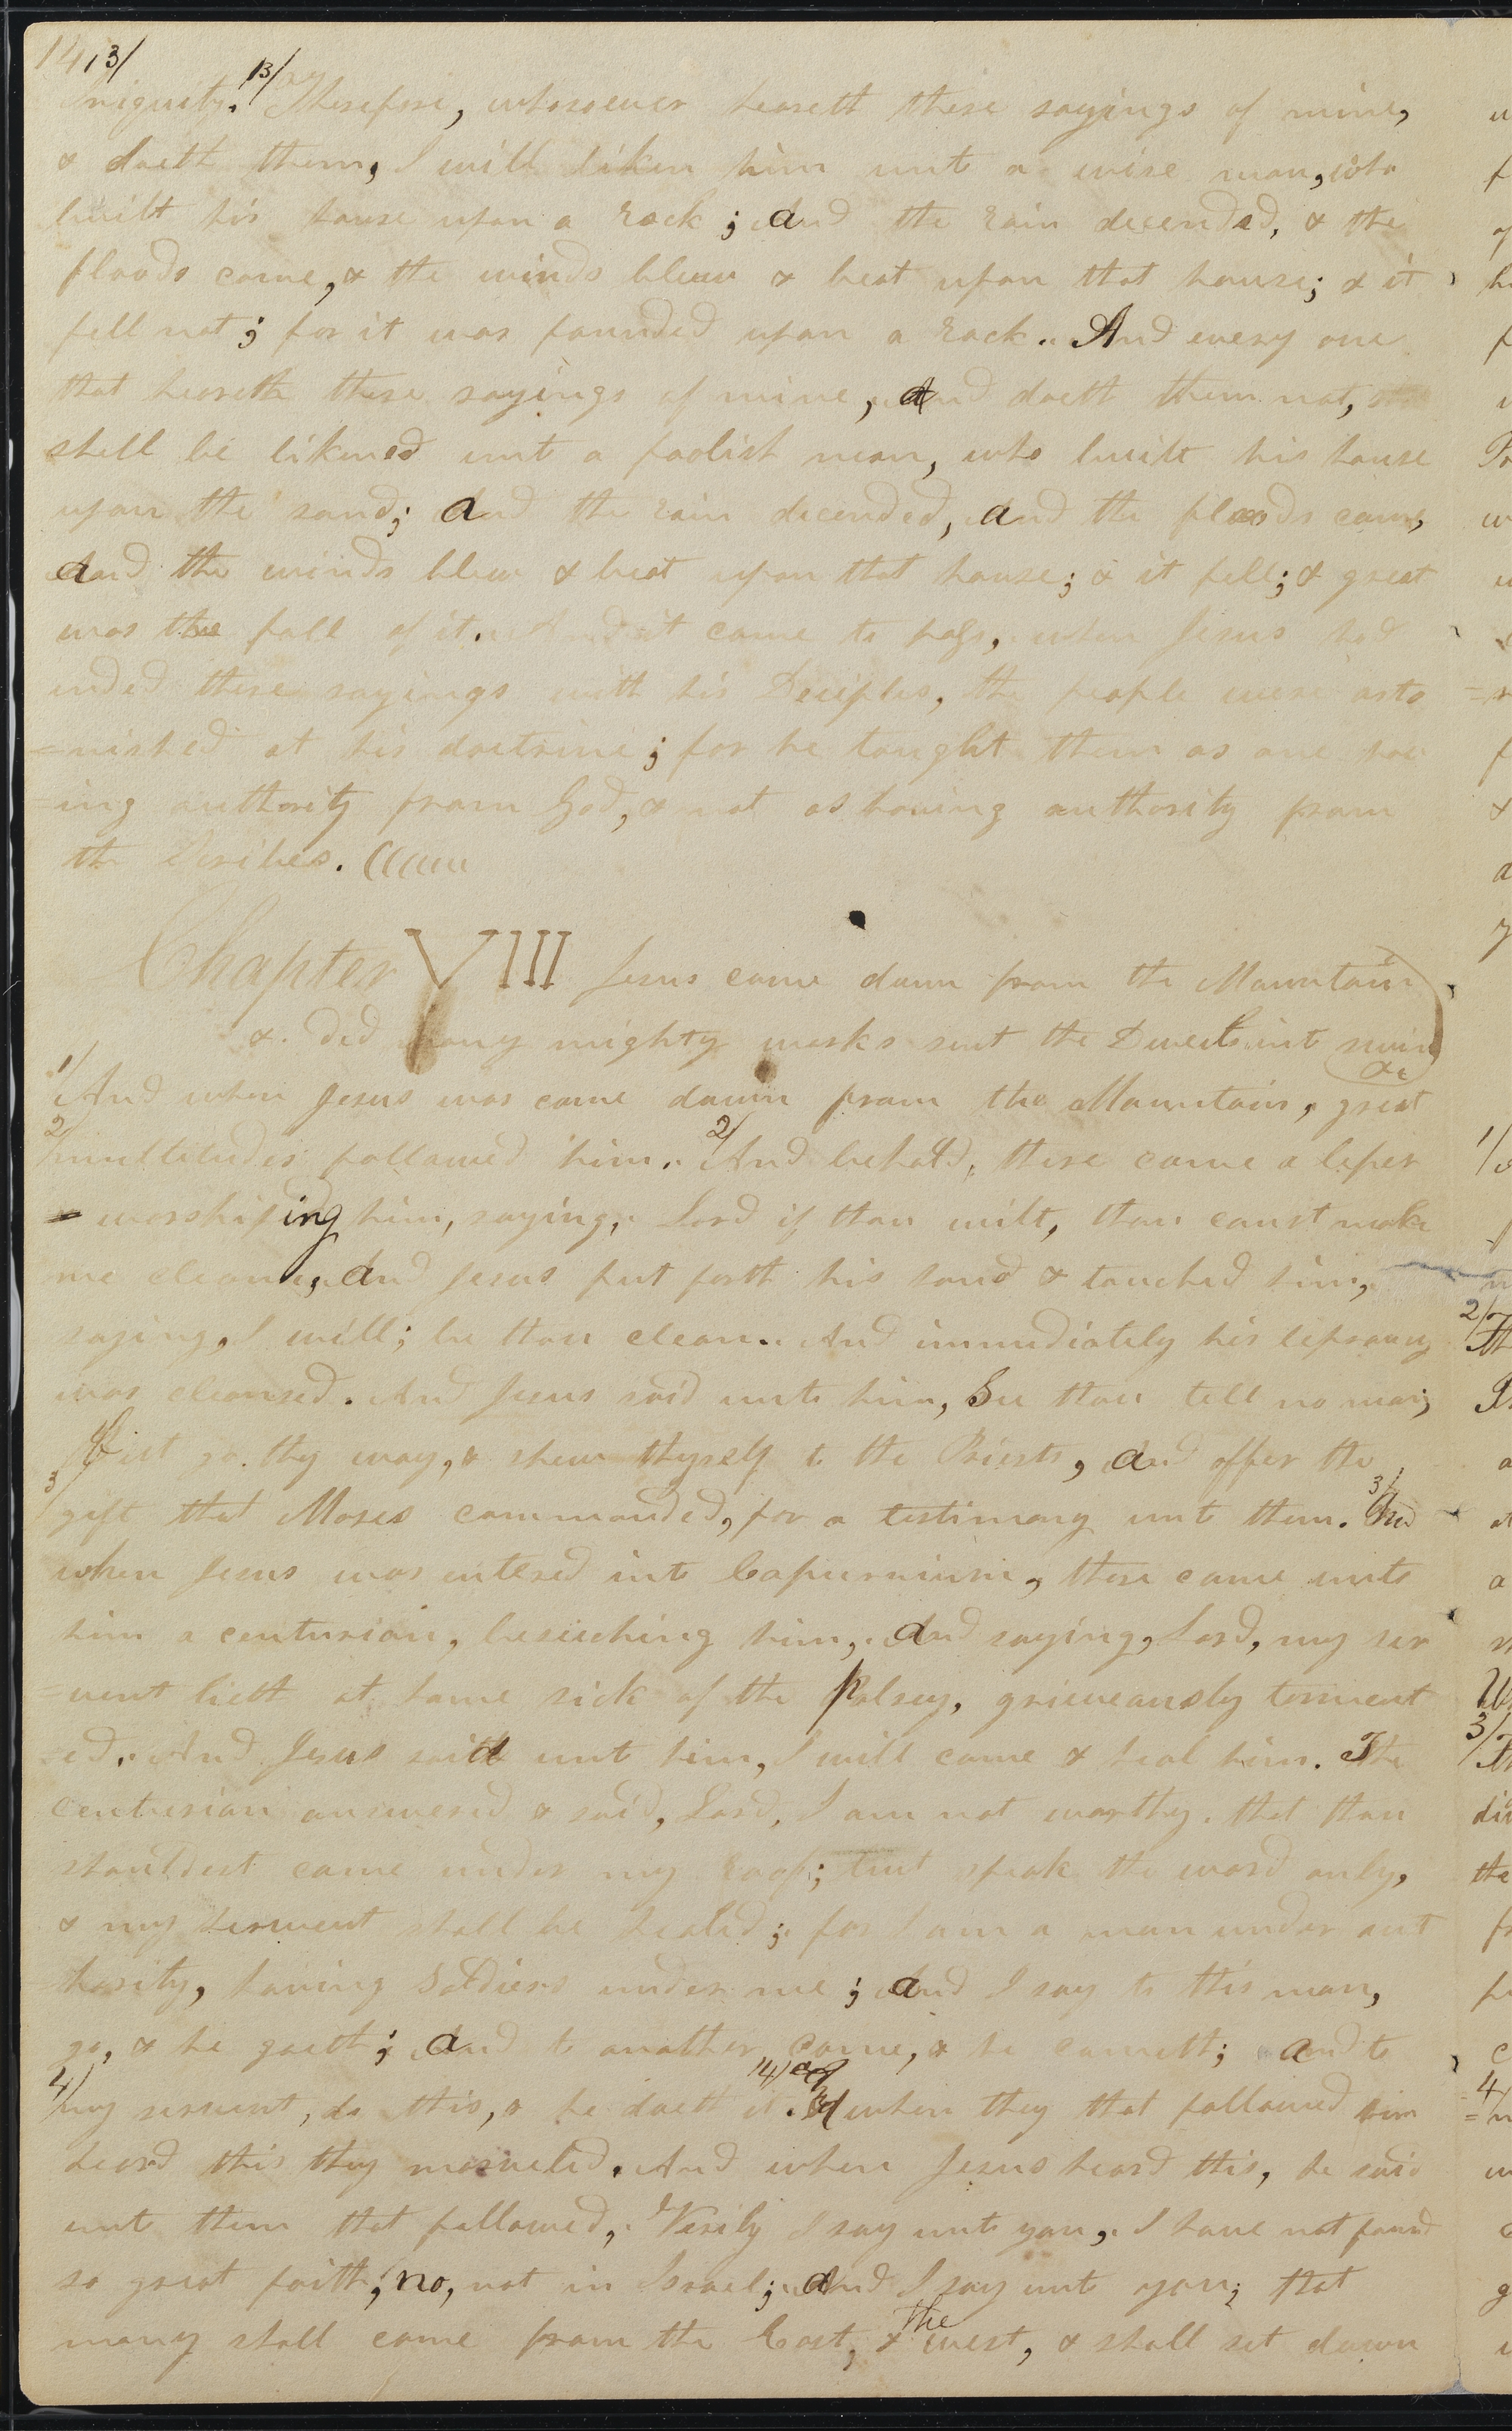 14 13/
iniquity. 13/ Therefore, whosoever heareth these sayings of mine,
& doeth them, I will liken him unto a wise man, who
built his house upon a rock; and the rain decended, & the
floods came, & the winds blew & beat upon that house; & it
fell not; for it was founded upon a rock. And every one
that heareth these sayings of mine, and doeth them not,
shall be likened unto a foolish man, who built his house
upon the sand; and the rain decended, and the floods came,
and the winds blew & beat upon that house; & it fell; & great
was the fall of it. And it came to pass, when Jesus had
ended these sayings with his Deciples, the people were asto
=nished at his doctrine; for he taught them as one hav
=ing authority from God, & not as having authority from
the Scribes.
Chapter VIII Jesus came down from the Mountain
& did many mighty works sent the Devels into swine
&c
1/ And when Jesus was come down from the Mountain, great
2/ multitudes followed him. 2/ And behold, there came a leper
worshiping him, saying, Lord if thou wilt, thou canst make
me clean, and Jesus put forth his hand & touched him,
saying, I will; be thou clean. And immediately his leprosy
was cleansed. And Jesus said unto him, See thou tell no man;
but go thy way, & shew thyself to the Priests, and offer the
3/ gift that Moses commanded, for a testimony unto them. 3/ And
when Jesus was entered into Capurnium, there came unto
him a centurion, beseeching him, and saying, Lord, my ser
=vent lieth at home sick of the Palsey, grieveously torment
=ed. And Jesus said unto him, I will come & heal him. The
centurion answered & said, Lord, I am not worthy that thou
shouldest come under my roof; but speak the word only,
& my servent shall be healed; for I am a man under aut
hority, having Soldiers under me; and I say to this man,
go, & he goeth; and to another come, & he cometh; and to
4/ my servent, do this, & he doeth it. 4/ and when they that followed him
heard this they marveled. And when Jesus heard this, he said
unto them that followed, Verily I say unto you, I have not found
so great faith; no, not in Israel; and I say unto you; that
many shall come from the East, & the west, & shall set down